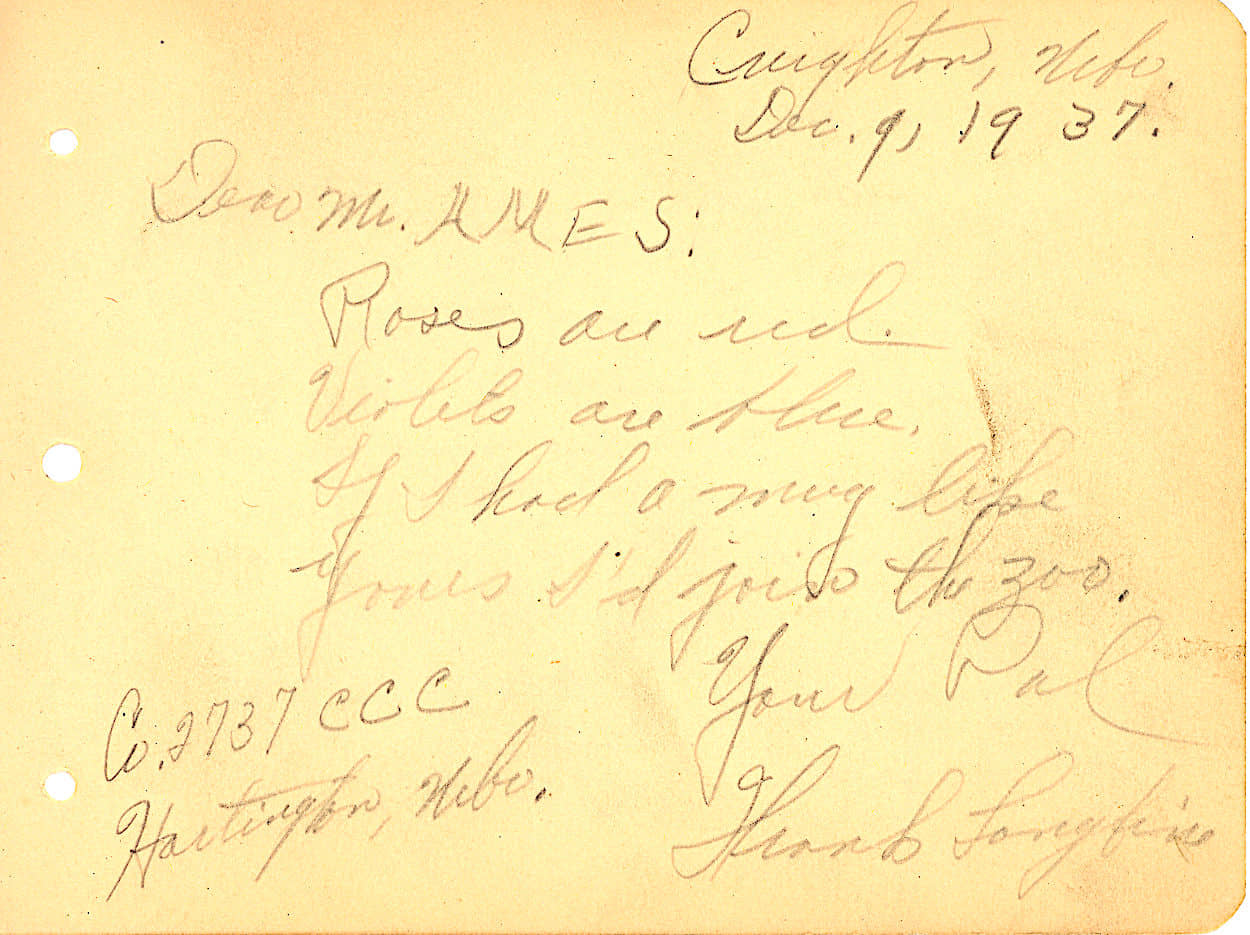 Creighton, Nebr.
Dec. 9, 1937.
Dear Mr. AMES:
Roses are red.
Violets are blue.
If I had a mug like
yours I'd join the zoo.
Your Pal
Co. 2737 CCC
Hartington, Nebr.
Frank